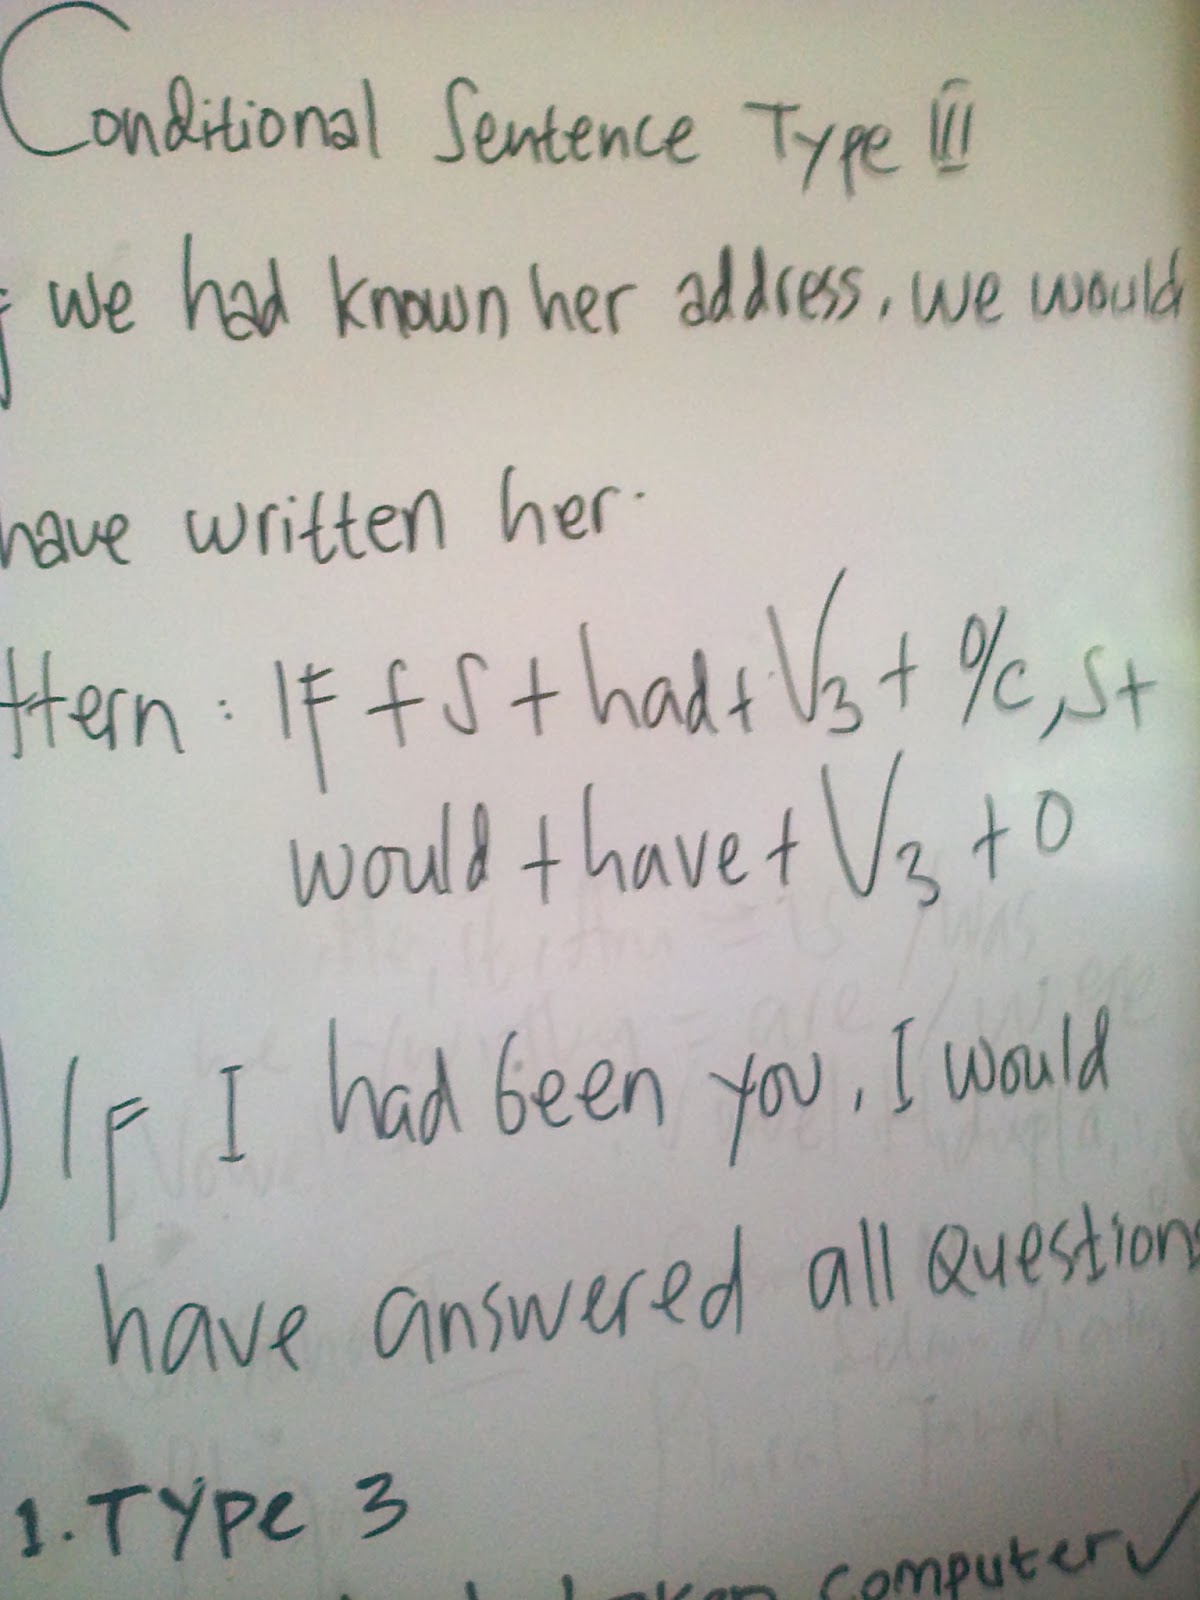 Conditional Sentence Type III
we had known her address, we would
have written her.
ttern : IF + S + had + V3 + O/C, S +
would + have + V3 + O
) IF I had been you, I would
have answered all Questions
1. Type 3
computer ✓